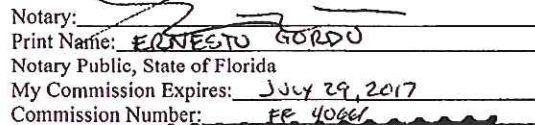 Notary:
Print Name: ERNESTO GORDO
Notary Public, State of Florida
My Commission Expires: JULY 29, 2017
Commission Number: FF